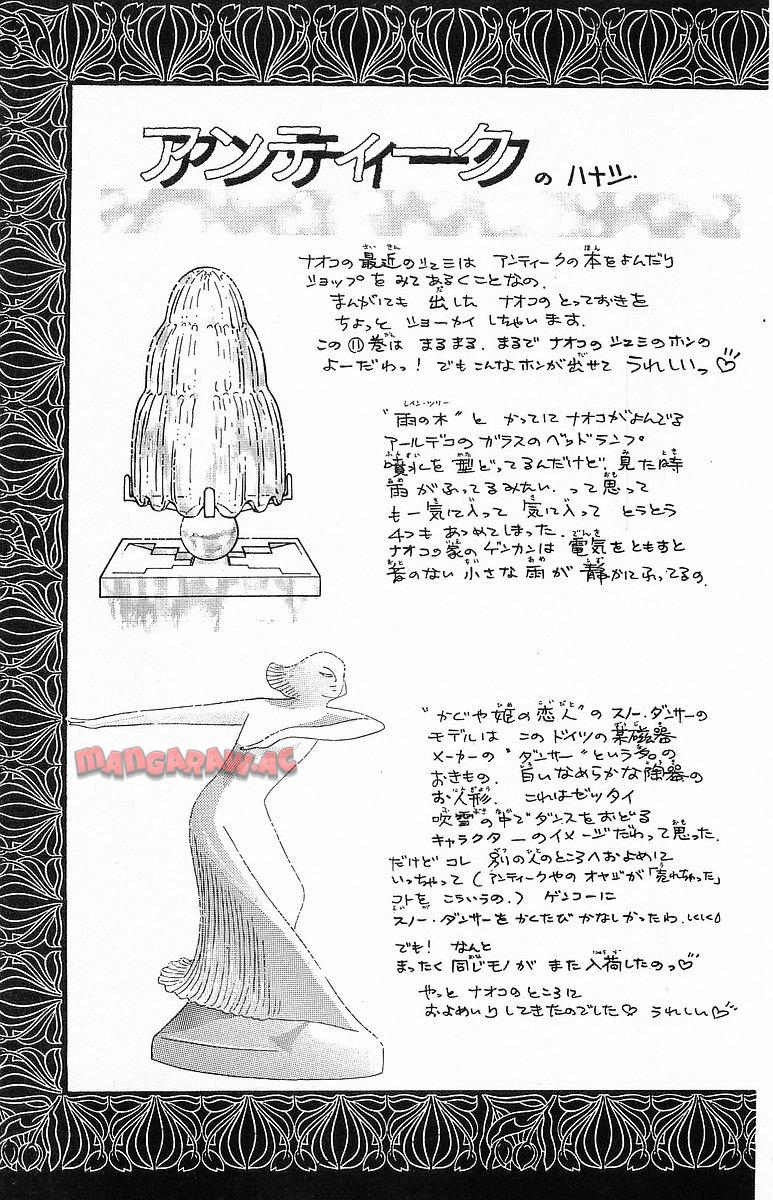 アンティークの ハナシ.
ナオコの最近のシュミは アンティークの本をよんだり
ショップをみてあるくことなの.
まんがにも 出した ナオコのとっておきを
ちょっと ショーカイしちゃいます.
この⑪巻は まるまる. まるでナオコのシュミのホンの
よーだわっ! でもこんなホンが出せて うれしいっ♡
レイン・ツリー
"雨の木"と かってにナオコがよんでる
アールデコのガラスのベッドランプ
噴水を型どってるんだけど, 見た時
雨がふってるみたい. って思って
も一気に入って 気に入って とうとう
4つもあつめてしまった.
ナオコの家のゲンカンは 電気をともすと
音のない小さな雨が 静かにふってるの.
"かぐや姫の恋人"のスノー・ダンサーの
モデルは このドイツの某磁器
メーカーの"ダンサー"という名の
おきもの. 白いなめらかな陶器の
お人形. これはゼッタイ
吹雪の中でダンスをおどる
キャラクターのイメージだわって思った.
だけどコレ 別の人のところへおよめに
いっちゃって(アンティークやのオヤジが「売れちゃった」
コトをこういうの.) ゲンコーに
スノー・ダンサーをかくたびかなしかったわ.しくしく
でも! なんと
まったく同じモノが また入荷したのっ♡
やっと ナオコのところに
およめいりしてきたのでした♡ うれしい♡
MANGARAW.AC